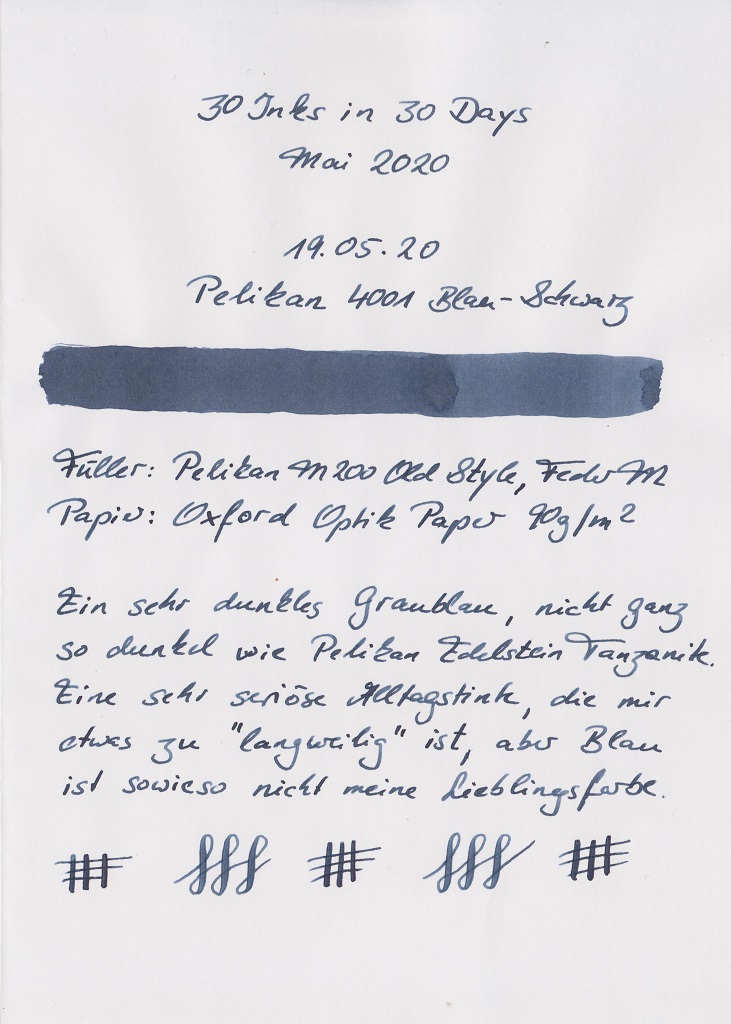 30 Inks in 30 Days
Mai 2020
19.05.20
Pelikan 4001 Blau-Schwarz
Füller: Pelikan M200 Old Style, Feder M
Papier: Oxford Optik Paper 90g/m²
Ein sehr dunkles Graublau, nicht ganz
so dunkel wie Pelikan Edelstein Tanzanite.
Eine sehr seriöse Alltagstinte, die mir
etwas zu "langweilig" ist, aber Blau
ist sowieso nicht meine Lieblingsfarbe.